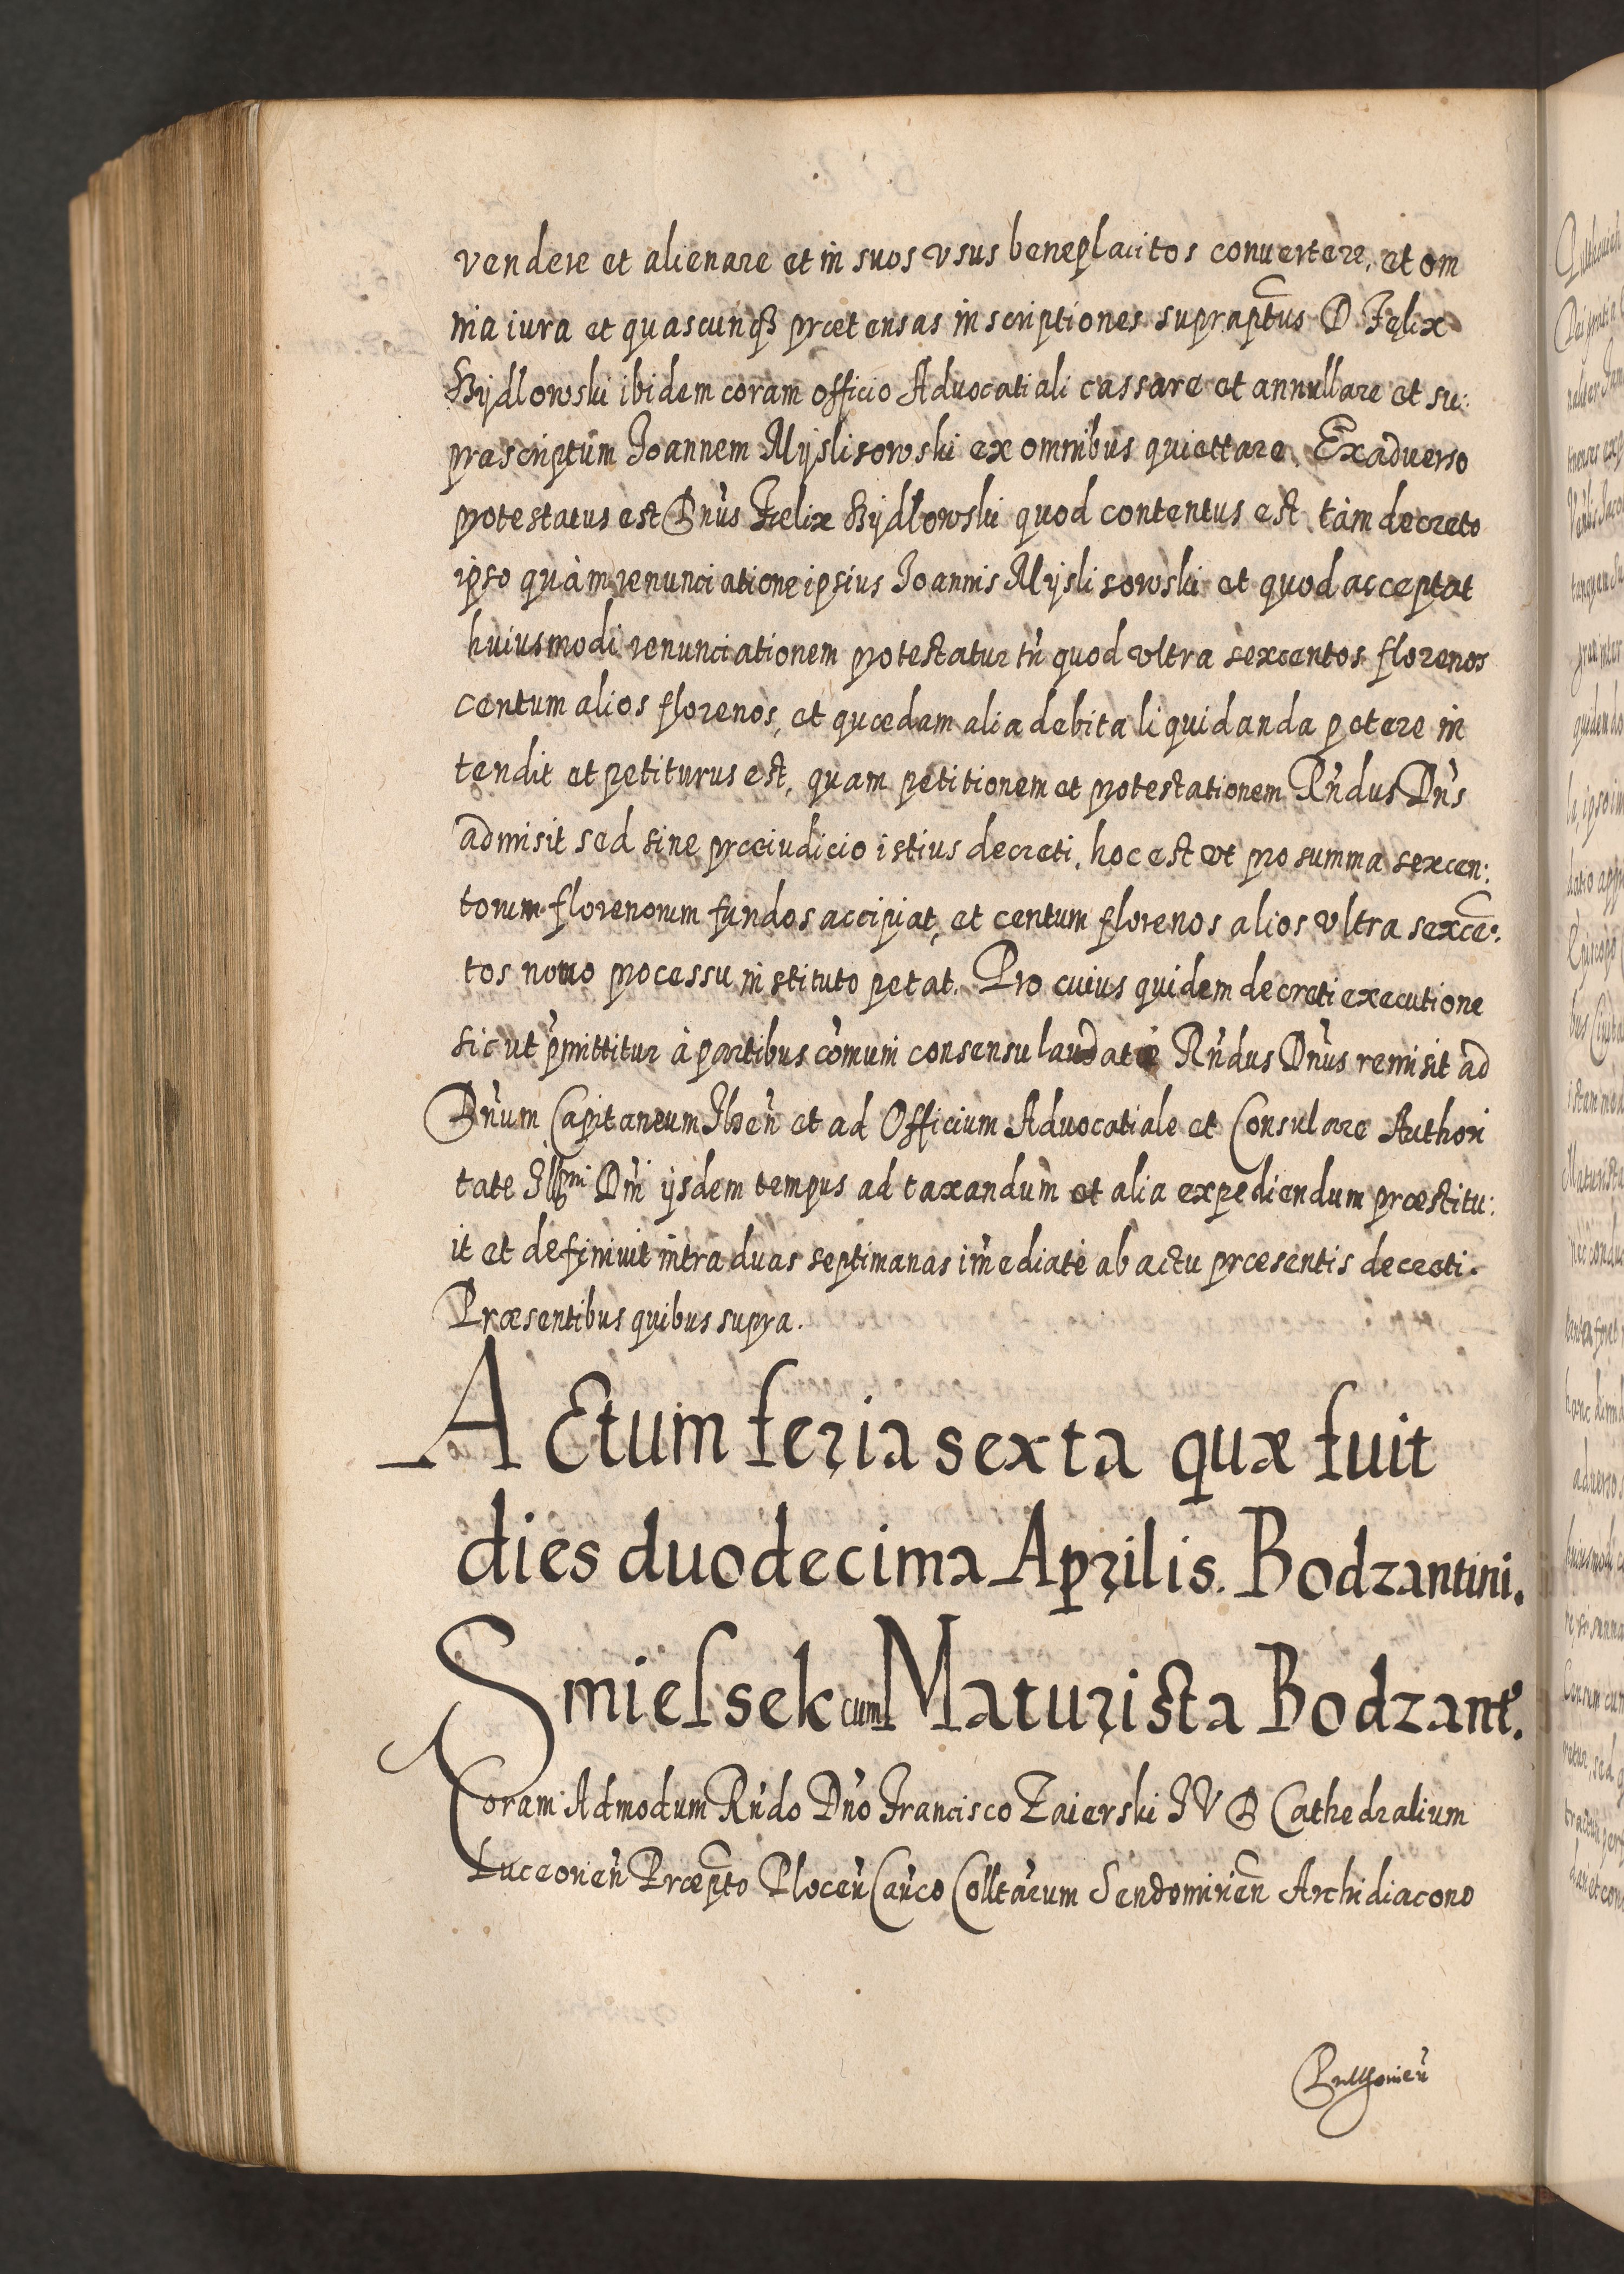 vendere et alienare et in suos vsus beneplacitos conuertere, et om
nia iura et quascunqß prætensas inscriptiones supraptus D. Fęlix
Bydlowski ibidem coram officio Aduocatiali cassare et annullare et su:
prascriptum Joannem Myslisowski ex omnibus quiettare. Ex aduerso
protestatus est Dnus Fælix Bydlowski quod contentus est tàm decreto
ipso quàm renunciatione ipsius Joannis Myslisowski et quod acceptat
huiusmodi renunciationem protestatur tn quod vltra sexcentos florenos
centum alios florenos, et quædam alia debita liquidanda petere in
tendit et petiturus est, quam petitionem et protestationem Rndus Dns
admisit sed sine præiudicio istius decreti, hoc est vt pro summa sexcen:
torum florenorum fundos accipiat, et centum florenos alios vltra sexce:
tos nouo processu instituto petat. Pro cuius quidem decreti executione
sicut pmittitur à partibus comuni consensu laudatæ Rndus Dnus remisit ad
Dnum Capitaneum Ilzen et ad Officium Aduocatiale et Consulare Authori
tate Illmi Dni ijsdem tempus ad taxandum et alia expediendum præstitu:
it et definiuit intra duas septimanas imediatè ab actu præsentis decreti.
Præsentibus quibus supra.
Actum feria sexta quæ fuit
dies duodecima Aprilis. Bodzantini.
Smielsek cum Maturista Bodzant.
Coram Admodum Rndo Dno Francisco Zaierski IVD Cathedralium
Luceorien Præpto Plocen Canco Colltarum Sendomirien Archidiacono
Pultouien